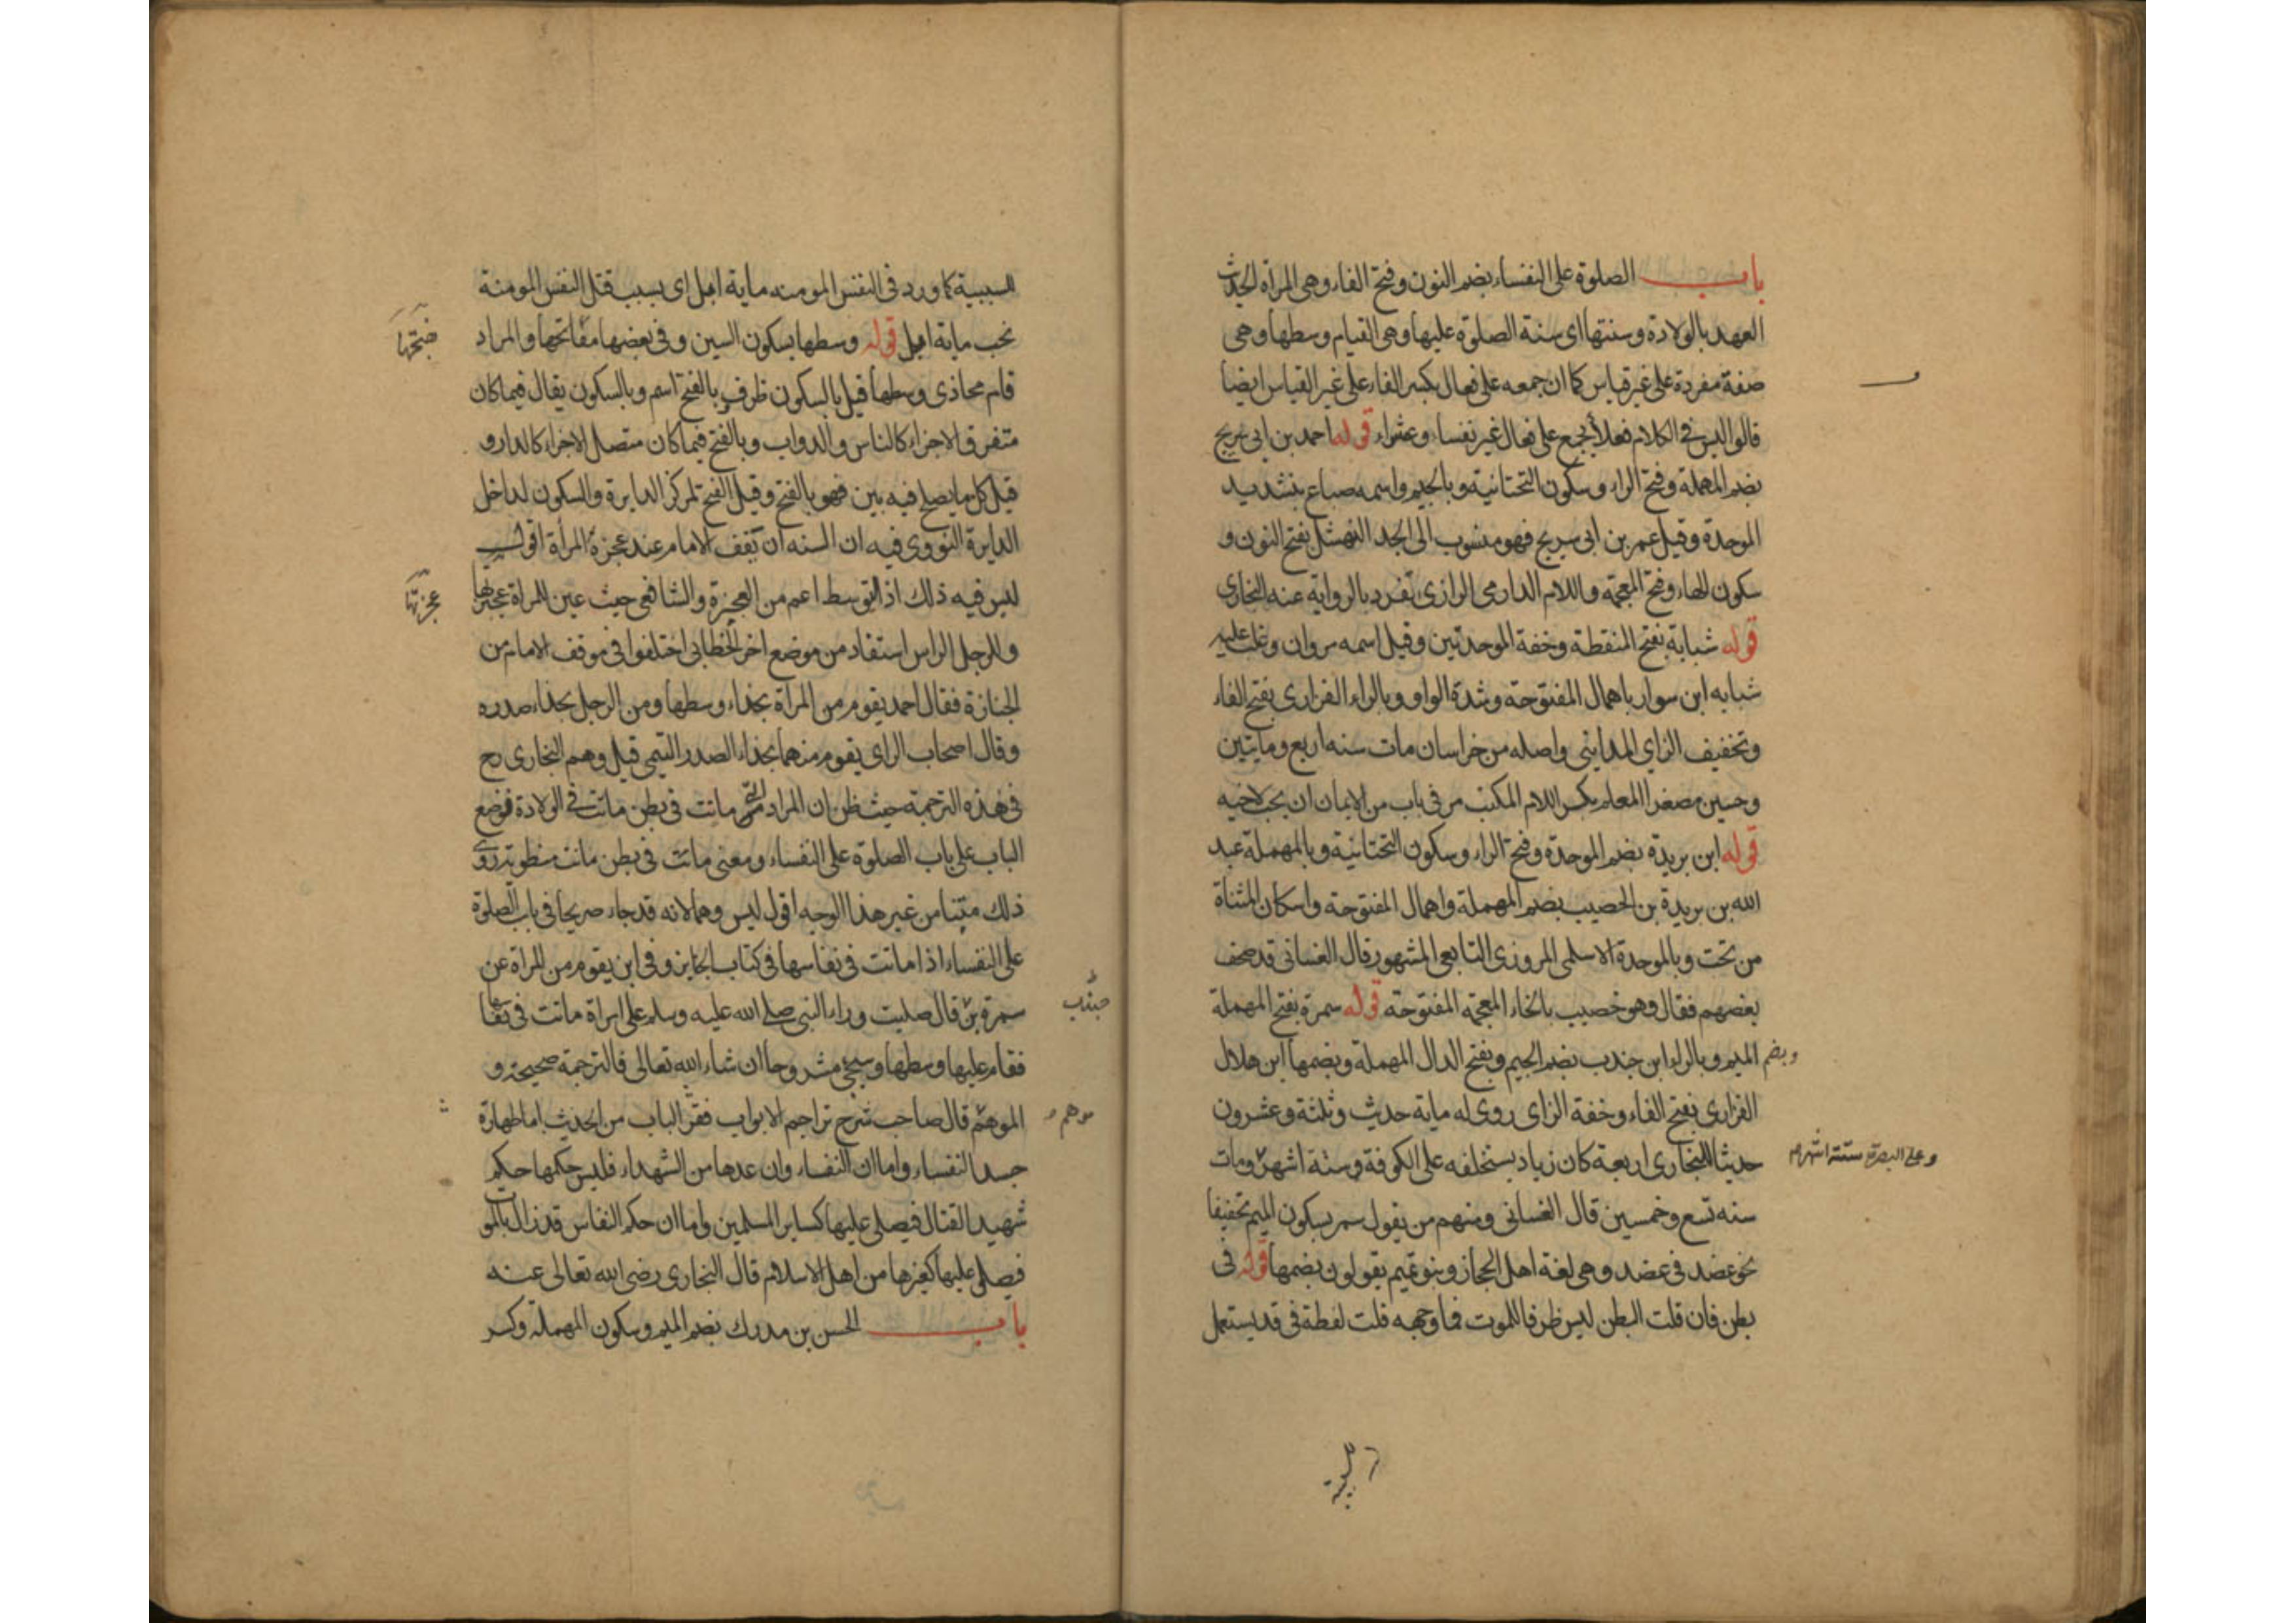 باب الصلوة على النفساء بضم النون وفتح الفاء وهى المرأة الحديث
العهد بالولادة وسنتها اى سنة الصلوة عليها وهى القيام وسطها وهى
صفة مفردة على غير قياس كما ان جمعه على فعال بكسر الفاء على غير القياس ايضا
قالوا ليس فى الكلام فعلاء يجمع على فعال غير نفساء وعشراء قوله احمد بن ابى سريج
بضم المهملة وفتح الراء وسكون التحتانية وبالجيم واسمه صباع بتشديد
الموحدة وقيل عمر بن ابى سريج فهو منسوب الى الجد النهشلى بفتح النون و
سكون الهاء وفتح المعجمة واللام الدارمى الرازى تفرد بالرواية عنه البخارى
قوله شبابة بفتح المنقطة وخفة الموحدتين وقيل اسمه مروان وغلب عليه
شبابه ابن سوار باهمال المفتوحة وشدة الواو وبالراء الفزارى بفتح الفاء
وتخفيف الزاى المداينى واصله من خراسان مات سنه اربع ومايتين
وحسين مصغرا المعلم بكسر اللام المكتب مر فى باب من الايمان ان يحب لاخيه
قوله ابن بريدة بضم الموحدة وفتح الراء وسكون التحتانية وبالمهملة عبد
الله بن بريدة بن الحصيب بضم المهملة واهمال المفتوحة واسكان المثناة
من تحت وبالموحدة الاسلمى المروزى التابعى المشهور قال الغسانى قد صحف
بعضهم فقال وهو خصيب بالخاء المعجمة المفتوحة قوله سمرة بفتح المهملة
وبضم الميم وبالراء ابن جندب بضم الجيم وبفتح الدال المهملة وبضمها ابن هلال
الفزارى بفتح الفاء وخفة الزاى روى له ماية حديث وثلثة وعشرون
حديثا للبخارى اربعة كان زياد يستخلفه على الكوفة وستة اشهر ومات
وعلى البصرة ستة اشهر
سنه تسع وخمسين قال الغسانى ومنهم من يقول سمر بسكون الميم تخفيفا
نحو عضد فى عضد وهى لغة اهل الحجاز وبنو تميم يقولون بضمها قوله فى
بطن فان قلت البطن ليس ظرفا للموت فما وجهه قلت لفظة فى قد يستعمل
للسببية كما ورد فى النفس المومنه ماية ابل اى بسبب قتل النفس المومنة
تجب ماية ابل قوله وسطها بسكون السين وفى بعضها مفاتحها والمراد
قام محاذى وسطها قيل بالسكون ظرف بالفتح اسم وبالسكون يقال فيما كان
متفرق الاجزاء كالناس والدواب وبالفتح فيما كان متصل الاجزاء كالدار و
قيل كل ما يصلح فيه بين فهو بالفتح وقيل الفتح لمركز الدايرة والسكون لداخل
الدايرة النووى فيه ان السنه ان يقف الامام عند عجزة المرأة اقول
ليس فيه ذلك اذ التوسط اعم من العجزة والشافعى حيث عين للمراة عجزتها
عجزتها
وللرجل الراس استفاد من موضع اخر الخطابى اختلفوا فى موقف الامام من
الجنازة فقال احمد يقوم من المرأة بحذاء وسطها ومن الرجل بحذاء صدره
وقال اصحاب الراى يقوم منهما بحذاء الصدر التيمى قيل وهم البخارى رح
فى هذه الترجمة حيث ظن ان المراد التى ماتت فى بطن ماتت فى الولادة فوضع
الباب على باب الصلوة على النفساء ومعنى ماتت فى بطن ماتت مبطونة روى
ذلك مبينا من غير هذا الوجه اقول ليس وهما لانه قد جاء صريحا فى باب الصلوة
على النفساء اذا ماتت فى نفاسها فى كتاب الجنايز وفى اين يقوم من المراة عن
سمرة بن قال صليت وراء النبى صلى الله عليه وسلم على امراة ماتت فى نفاسها
جندب
فقام عليها وسطها وسيجئ مشروحا ان شاء الله تعالى فالترجمة صحيحة و
الموهم قال صاحب شرح تراجم الابواب فقه الباب من الحديث اما طهارة
موهم
جسد النفساء واما ان النفساء وان عدها من الشهداء فليس حكمها حكم
شهيد القتال فيصلى عليها كساير المسلمين واما ان حكم النفاس قد زال بالموت
فيصلى عليها كغيرها من اهل الاسلام قال البخارى رضى الله تعالى عنه
باب الحسن بن مدرك بضم الميم وسكون المهملة وكسر
للسببية